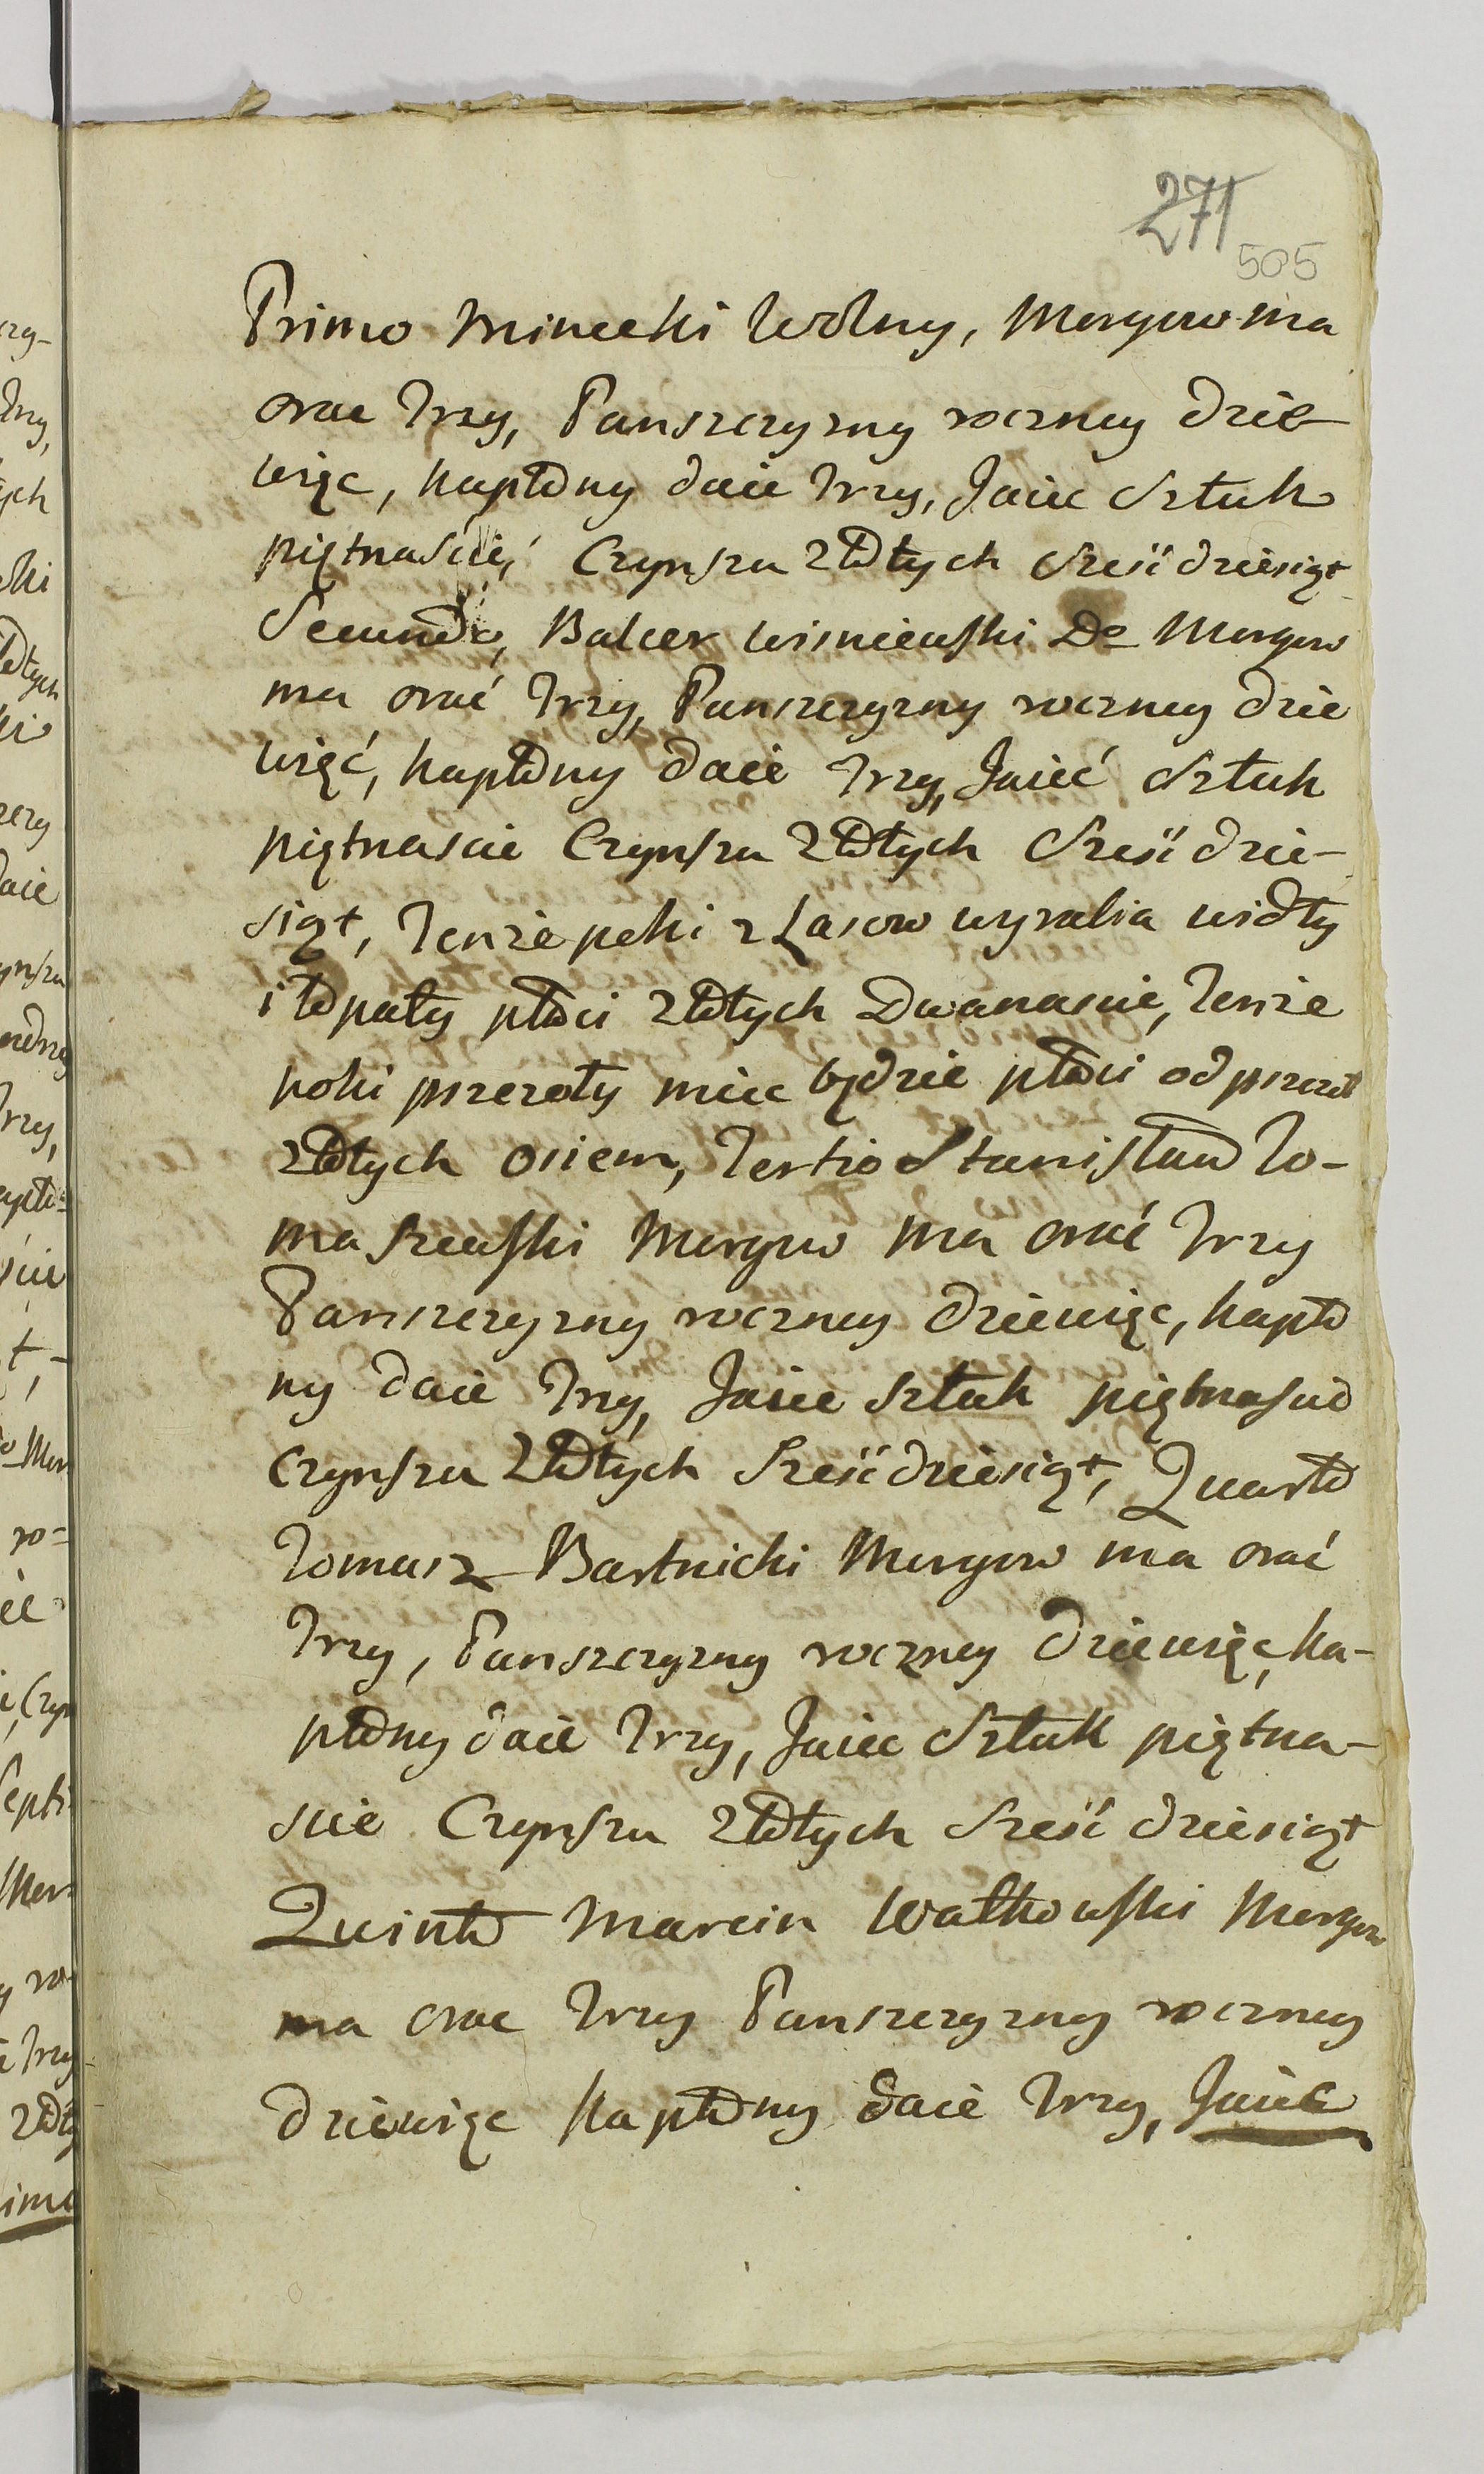 271
505
Primo Minecki Wolny, Morgow ma
orac Trzy, Panszczyzny roczney dzie-
więc, kapłony daie Trzy, Jaiec Sztuk
piętnaście, Czynszu Złotych Sześćdziesiąt
Secundo, Balcer Wisniewski Do Morgow
ma orać Trzy, Panszczyzny roczney dzie
więć, kapłony daie Trzy, Jaieć Sztuk
piętnascie Czynszu Złotych Sześćdzie-
siąt, Tenże poki z Lasow wyrabia widły
i łopaty płaci Złotych Dwanascie, Tenże
poki pszczoły miec będzie płaci od pszczoł
złotych osiem, Tertio Stanisław To-
maszewski Morgow ma orać Trzy
Panszczyzny roczney dziewięc, kapło
ny daie Trzy, Jaiec Sztuk piętnascie
Czynszu Złotych Sześćdziesiąt, Quarto
Tomasz Bartnicki Morgow ma orać
Trzy, Panszczyzny roczney dziewięc, ka-
płony daie Trzy, Jaiec Sztuk piętna-
scie Czynszu Złotych Sześćdziesiąt
Quinto Marcin Wałkowski Morgow
ma orac Trzy Panszczyzny roczney
dziewięc Kapłony daie Trzy, Jaiec